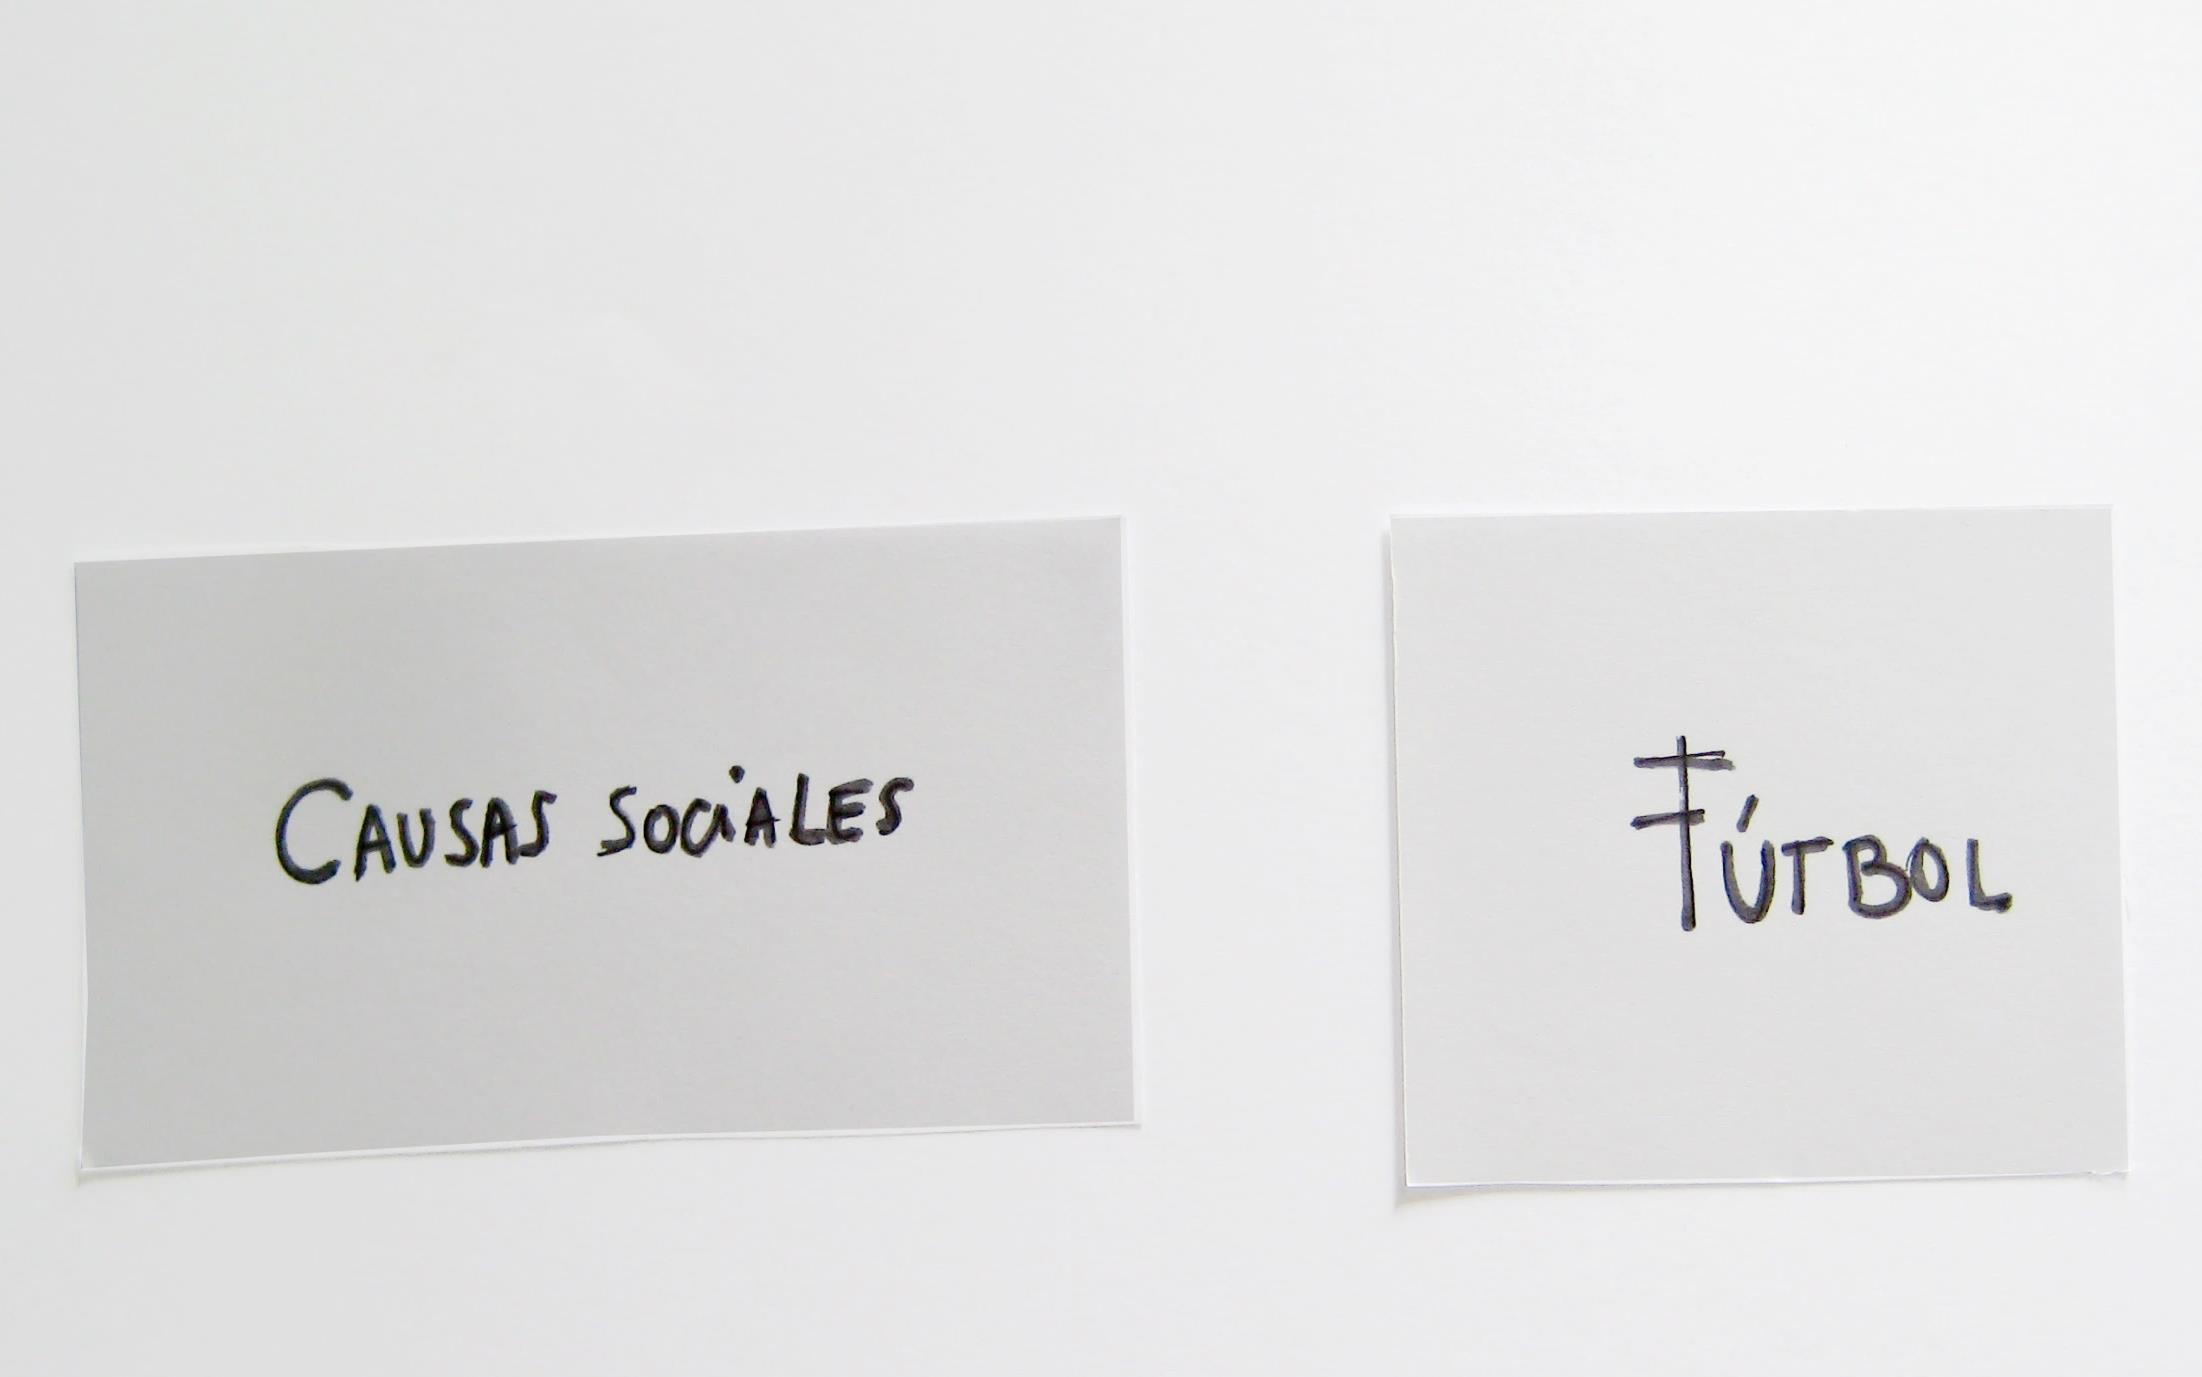 CAUSAS SOCiALES
FÚTBOL